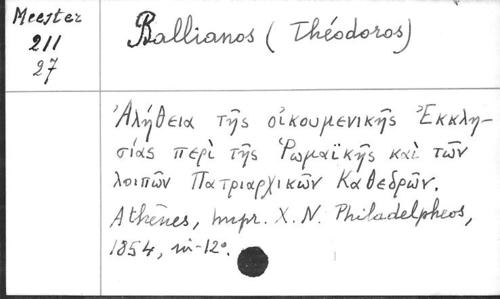 Meester
211
27
Ballianos (Théodoros)
Ἀλήθεια τῆς οἰκουμενικῆς Ἐκκλη-
σίας περὶ τῆς Ῥωμαϊκῆς καὶ τῶν
λοιπῶν Πατριαρχικῶν Καθεδρῶν.
Athènes, impr. X. N. Philadelpheos,
1854, in-12°.